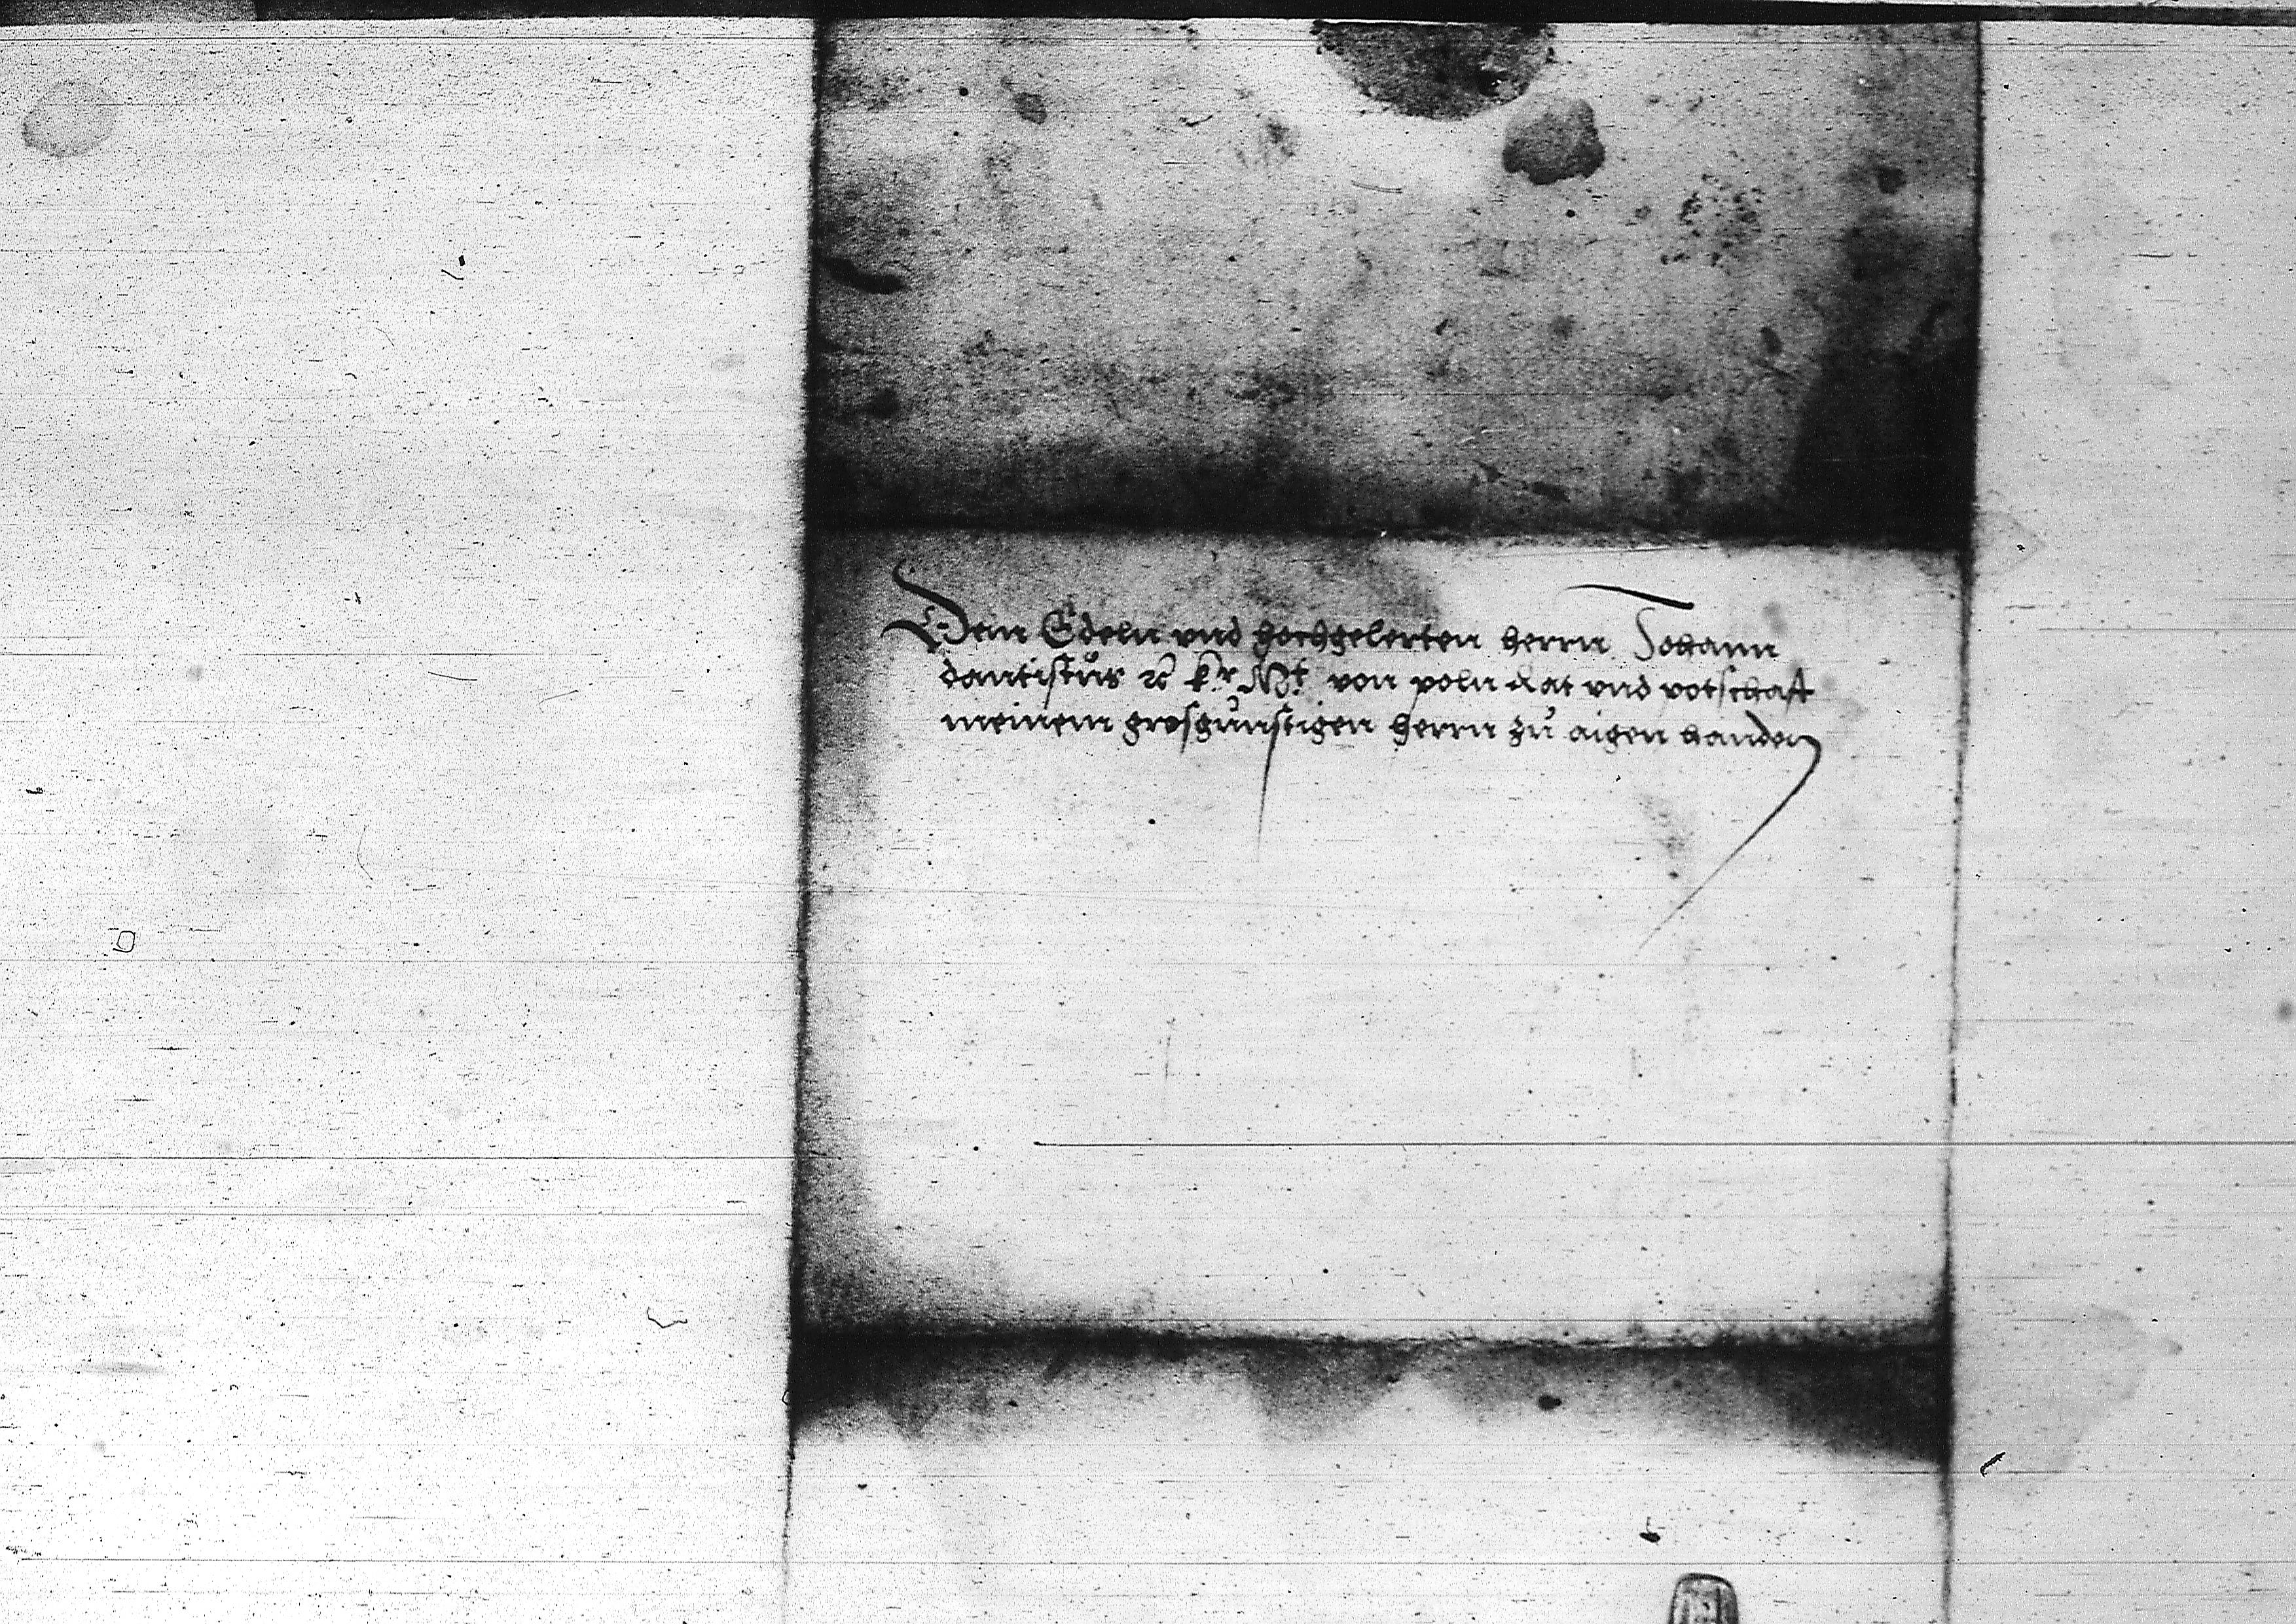 Dem Edeln vnd hochgelerten herrn Johann
dantiscus ꝛc kr Mt von poln Rat vnd potschaft
meinem grosgunstigen herrn zu aigen handen